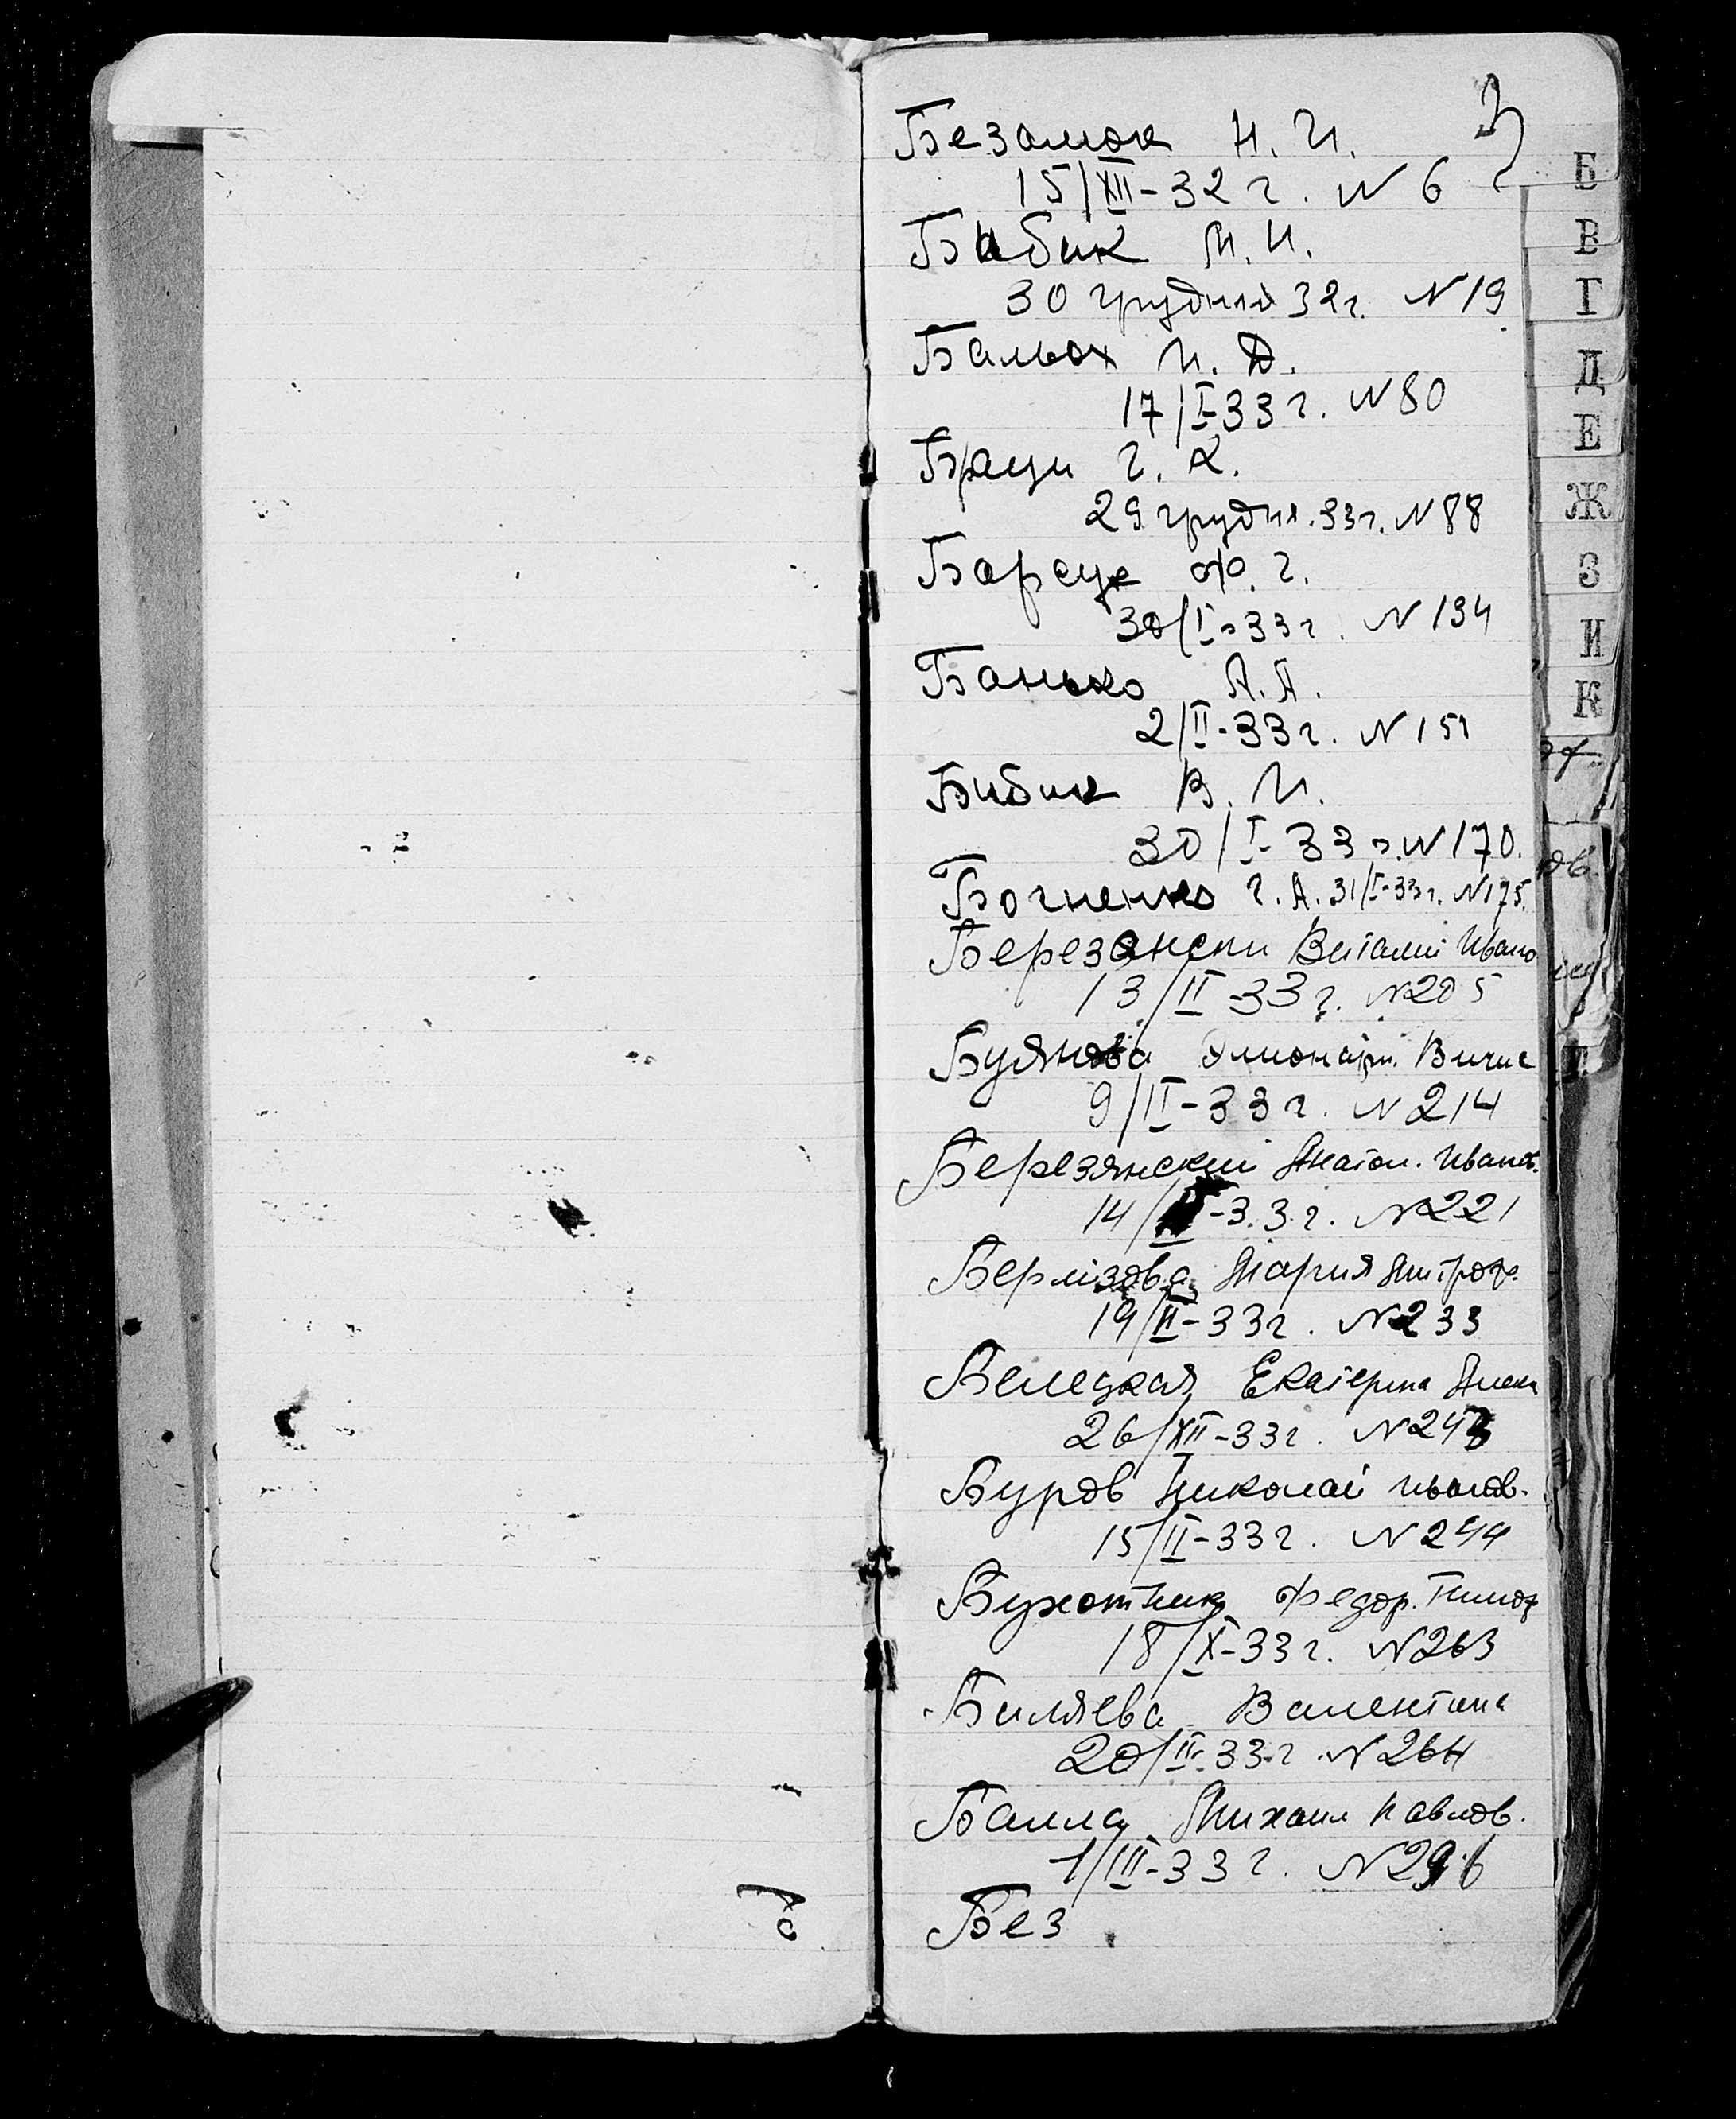 3
Безамок Н. И.
15/XII-32 г. N 6
Бибик М. И.
30 грудня 32г. N 19
Бальох И. Д.
17/I-33 г. N 80
Г. К.
29 грудня. 33г. N 88
Барсук Ф. Г.
30/I-33 г. N 134
Банько А. А.
2/II-33 г. N 151
Бибик В. И.
30/I-33 г. N 170.
Богненко Г. А. 31/I-33г. N 175.
Березански Виталий Ивано
13/II-33 г. N 205
Буянова
9/II-33 г. N 214
Березянский Анатол. Иванов.
14/II-33 г. N 221
Берлізова Мария Митроф.
19/II-33г. N 233
Белецкая Екатерина
26/XII-33г. N 243
Буров Николай иванов.
15/II-33 г. N 244
Бухотник Федор. Тимоф
18/X-33 г. N 263
Биляева Валентина
20/II-33 г. N 264
Балла Михаил Павлов.
1/III-33 г. N 296
Без
Б
В
Г
Д
Е
Ж
З
И
К